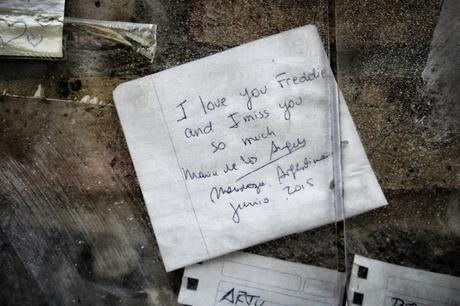 I love you Freddie
and I miss you
so much
Maria de los Angeles
Mendoza. Argentina
junio. 2015